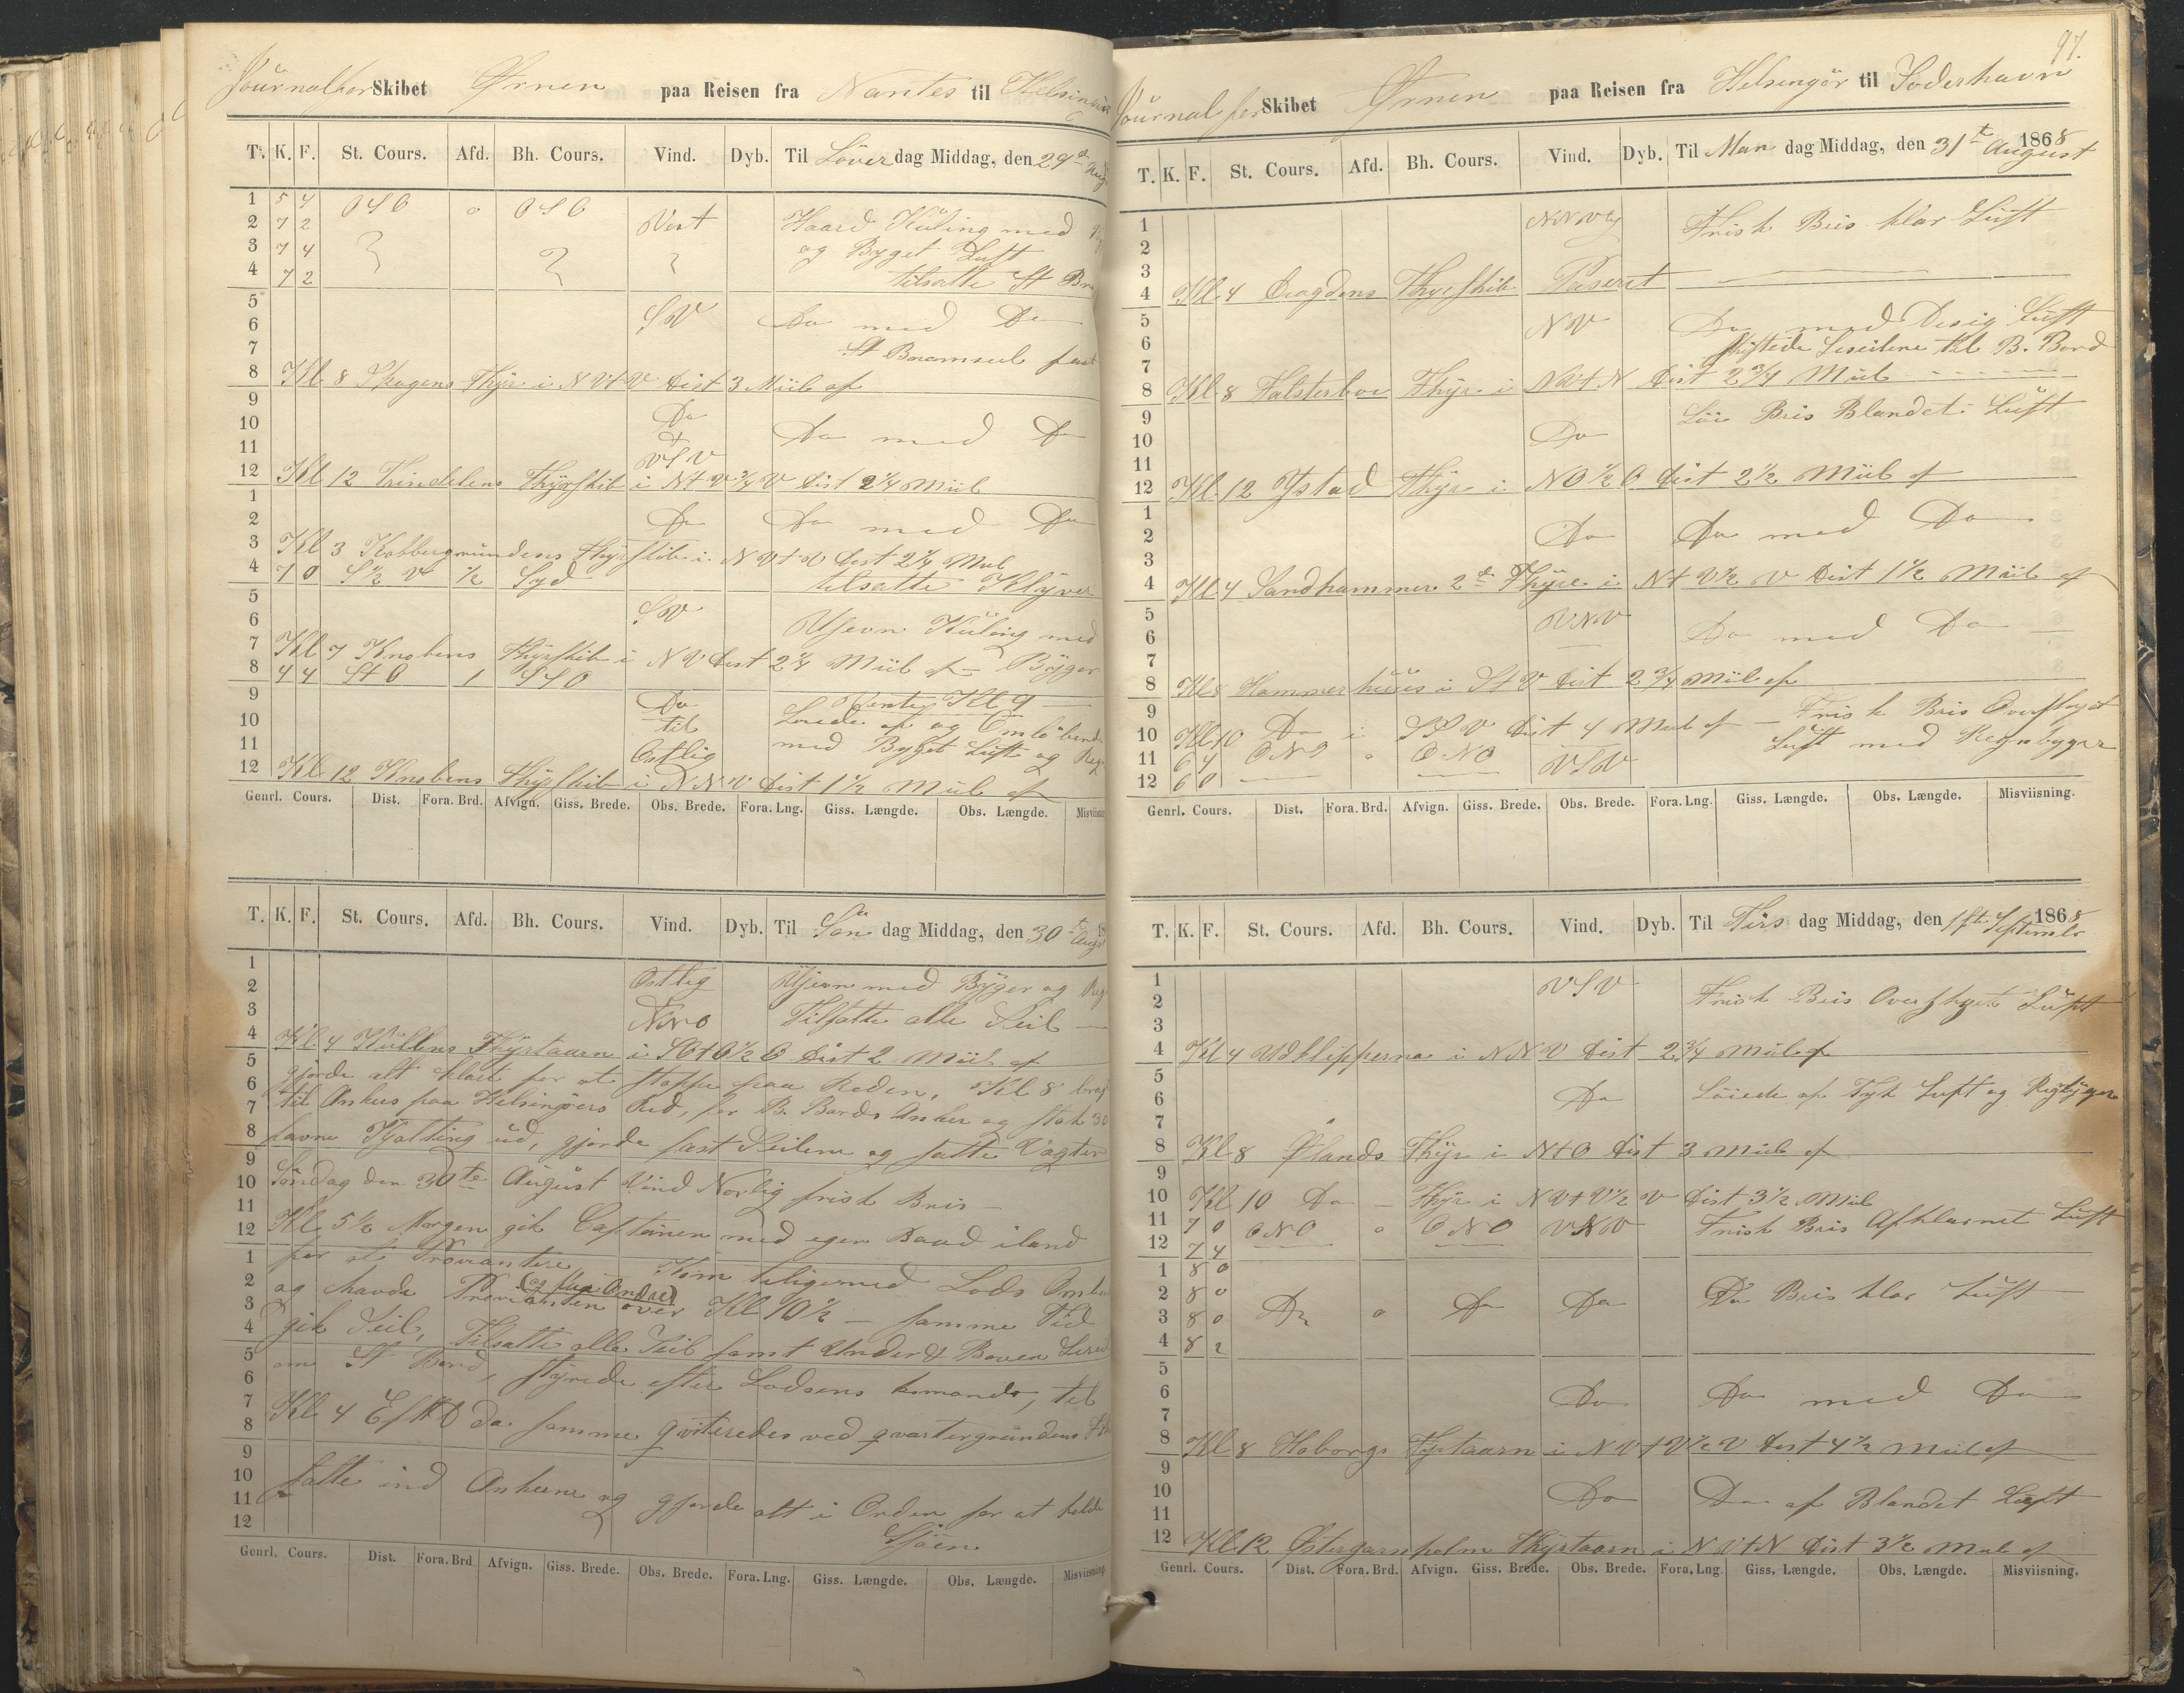 Journal for Skibet Ørnen paa Reisen fra Nantes til Helsingör
T. K. F. St. Cours. Afd. Bh. Cours. Vind. Dyb. Til Löver dag Middag, den 29de Aug
1 5 4 OSO 0 OSO Vest Haard Kuling med
2 7 2 og Byget Luft
3 7 4
4 7 2 tilsatte St Bram
5
6 SV Do med Do
7 St Bramseil fast
8 Kl 8 Skagens Fyr i NVtV Dist 3 Miil af
9 Do
10 Do med Do
11 VSV
12 Kl 12 Trindelens Fyrskib i NtV 3/4 V Dist 2 1/4 Miil
1
2 Do Do med Do
3 Kl 3 Kobbergrundens Fyrskib i NVtV Dist 2 1/4 Miil
4 7 0 S 1/2 V 1/2 Syd tilsatte Klyver
5
6 SV Ujevn Kuling med
7 Kl 7 Knobens Fyrskib i NV Dist 2 1/4 Miil af – Byger
8 4 4 StO 1 SSO
9 Do Vente Kl 9
10 til Loiede af og Omlöbende
11 Ostlig med Byget Luft og Regn
12 Kl 12 Knobens Fyrskib i NNV Dist 1 1/2 Miil af
Genrl. Cours. Dist. Fora. Brd. Afvign. Giss. Brede. Obs. Brede. Fora. Lng. Giss. Længde. Obs. Længde. Misviisning
T. K. F. St. Cours. Afd. Bh. Cours. Vind. Dyb. Til Sön dag Middag, den 30te Augst
1 Ostlig Ujevn med Byger og Reg
2
3 NNO Tilsatte alle Seil
4 Kl 4 Kullens Fyrtaarn i Dist 2 Miil af
5 gjorde alt klart for at stoppe paa Reden, Kl 8 bragt
6 til Ankers paa Helsingörs Red, for B. Bords Anker og stak 30
7
8 favne Kjætting ud, gjorde fast Seilene og satte Vagter
9
10 Söndag den 30te August Vind Norlig frisk Bris –
11
12 Kl 5 1/2 Morgen gik Captainen med egen Baad iland
1 for at Proviantere Kom tiligemed Lods Ombord
2 og havde Provianten (og flere Andre) over Kl 10 1/2 – samme Tid
3
4 gik Seil, Tilsatte alle Seil samt Under & Boven Leseil
5 om St Bord, styrede efter Lodsens komando, til
6
7
8 Kl 4 Eft. da samme qviteredes ved qvartergrundens
9
10 satte ind Ankerne og gjorde alt i Orden for at holde
11 Sjöen
12
Genrl. Cours. Dist. Fora. Brd Afvign. Giss. Brede. Obs. Brede. Fora. Lng. Giss. Længde. Obs. Længde. Misviisning.
97.
Journal for Skibet Ørnen paa Reisen fra Helsingör til Soderhavn
T. K. F. St. Cours. Afd. Bh. Cours. Vind. Dyb. Til Man dag Middag, den 31te August 1868
1 NNV Frisk Bris klar Luft
2
3
4 Kl 4 Dragdens Fyrskib Paseret
5 NV Do med Disig Luft
6 skiftede Leseilene til B. Bord
7
8 Kl 8 Falsterboe Fyr i NVtN Dist 2 3/4 Miil
9 Löi Bris Blandet Luft
10 Do
11
12 Kl 12 Ystad Fyr i NO 1/2 O Dist 2 1/2 Miil af
1
2 Do Do med Do
3
4 Kl 4 Sandhammer 2de Fyre i NtV 1/2 V Dist 1 1/2 Miil af
5 VNV
6 Do med Do
7
8 Kl 8 Hammerhuus i StV Dist 2 3/4 Miil af
9 Frisk Bris Overflöyet
10 Kl 10 Do i SSV Dist 4 Miil af – Luft med Regnbyger
11 6 4 ONO 0 ONO VSV
12 6 0
Genrl. Cours. Dist. Fora. Brd. Afvign. Giss. Brede. Obs. Brede. Fora. Lng. Giss. Længde. Obs. Længde. Misviisning.
T. K. F. St. Cours. Afd. Bh. Cours. Vind. Dyb. Til Tirs dag Middag, den 1st September 1868
1 VSV Frisk Bris Overflyet Luft
2
3
4 Kl 4 Udklipperna i NNV Dist 2 3/4 Miil af
5
6 Do Löiede af Tyk Luft og Regbyger
7
8 Kl 8 Ølands Fyr i NtO Dist 3 Miil af
9
10 Kl 10 Do – Fyr i NVtV 1/2 V Dist 3 1/2 Miil
11 7 0 ONO 0 ONO VNV Frisk Bris Afklarnet Luft
12 7 4
1 8 0
2 8 0 Do 0 Do Do Do Bris klar Luft
3 8 0
4 8 2
5
6 Do Do med Do
7
8 Kl 8 Hoborgs Fyrtaarn i NVtV 1/2 V Dist 4 1/2 Miil af
9
10 Do Do af Blandet Luft
11
12 Kl 12 Østergarnholm Fyrtaarn i NVtN Dist 3 1/2 Miil af
Genrl. Cours. Dist. Fora. Brd. Afvign. Giss. Brede. Obs. Brede. Fora. Lng. Giss. Længde. Obs. Længde. Misviisning.